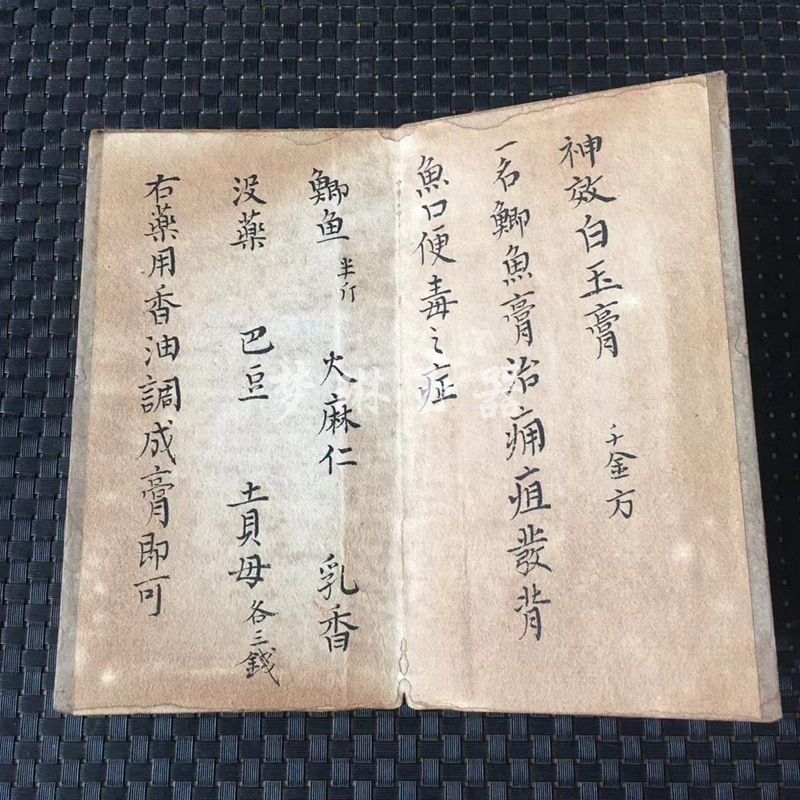 神效白玉膏 千金方
一名鯽魚膏治痈疽發背
魚口便毒之症
鯽鱼 半斤 火麻仁 乳香
没藥 巴豆 土貝母 各三錢
右藥用香油調成膏即可